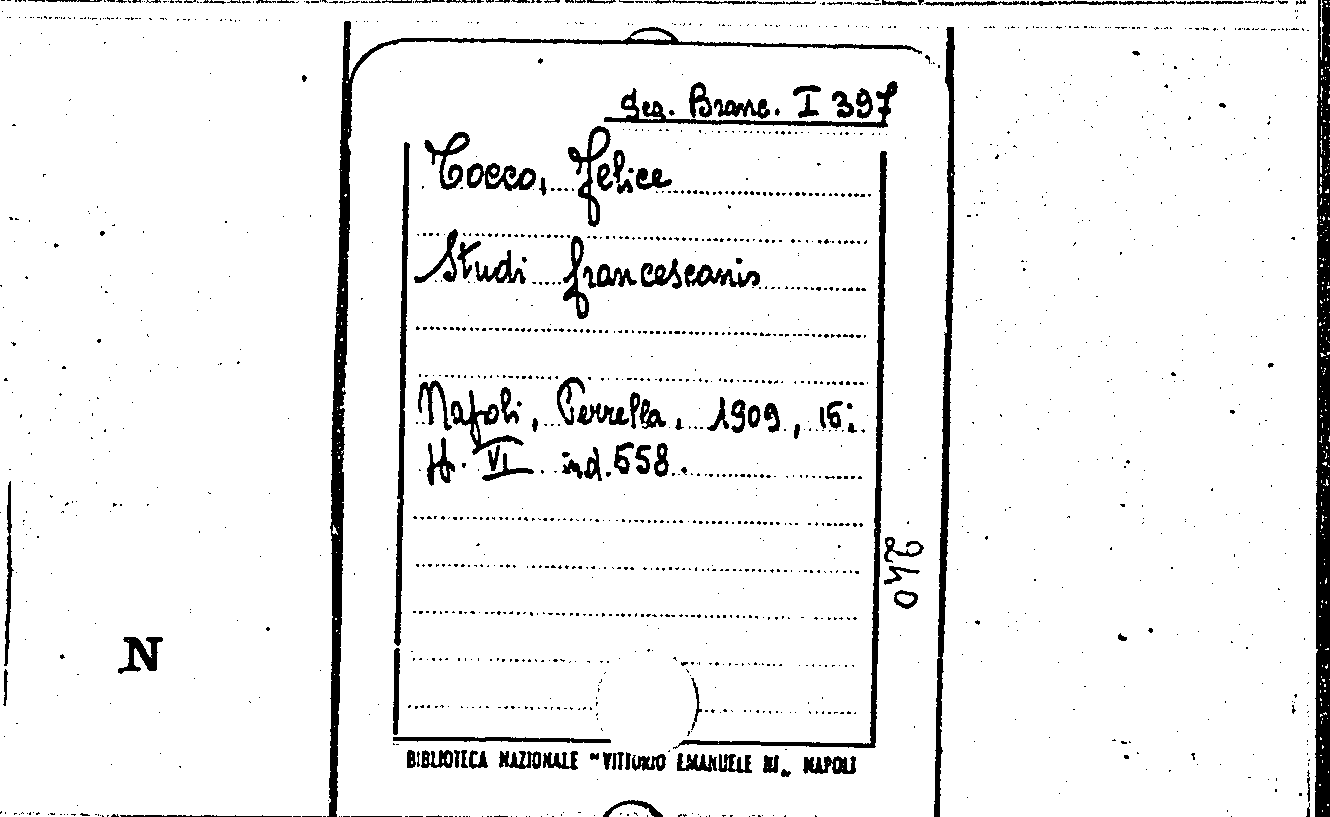 Seg. Branc. I 397
Tocco, Felice
Studi francescani
Napoli, Perrella, 1909, 16;
H. VI ind. 558.
240
N
BIBLIOTECA NAZIONALE "VITTORIO EMANUELE III„ NAPOLI